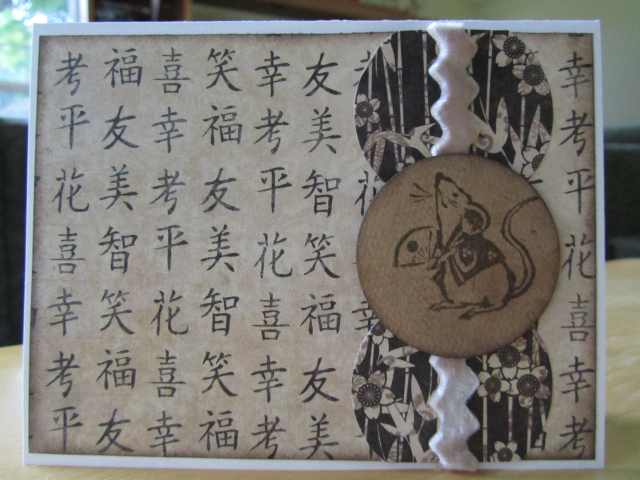 考福喜笑幸友 幸
平友幸福考美 考
花美考友平智 平
喜智平美花笑 花
幸笑花智喜福 喜
考福喜笑幸友 幸
平友幸福考美 考